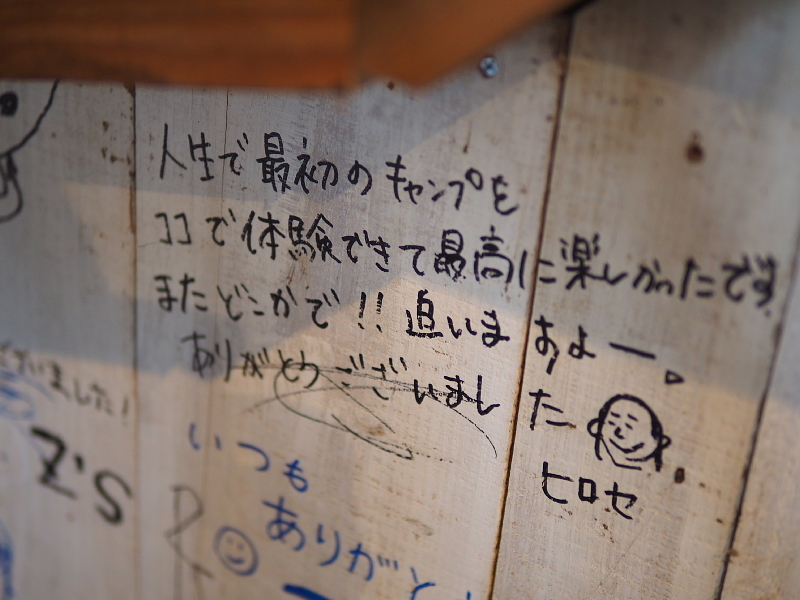 人生で最初のキャンプを
ココで体験できて最高に楽しかったです
またどこかで!! 追いまあよー。
ありがとうございました
ヒロセ
ざいました!
Z's
いつも
ありがと